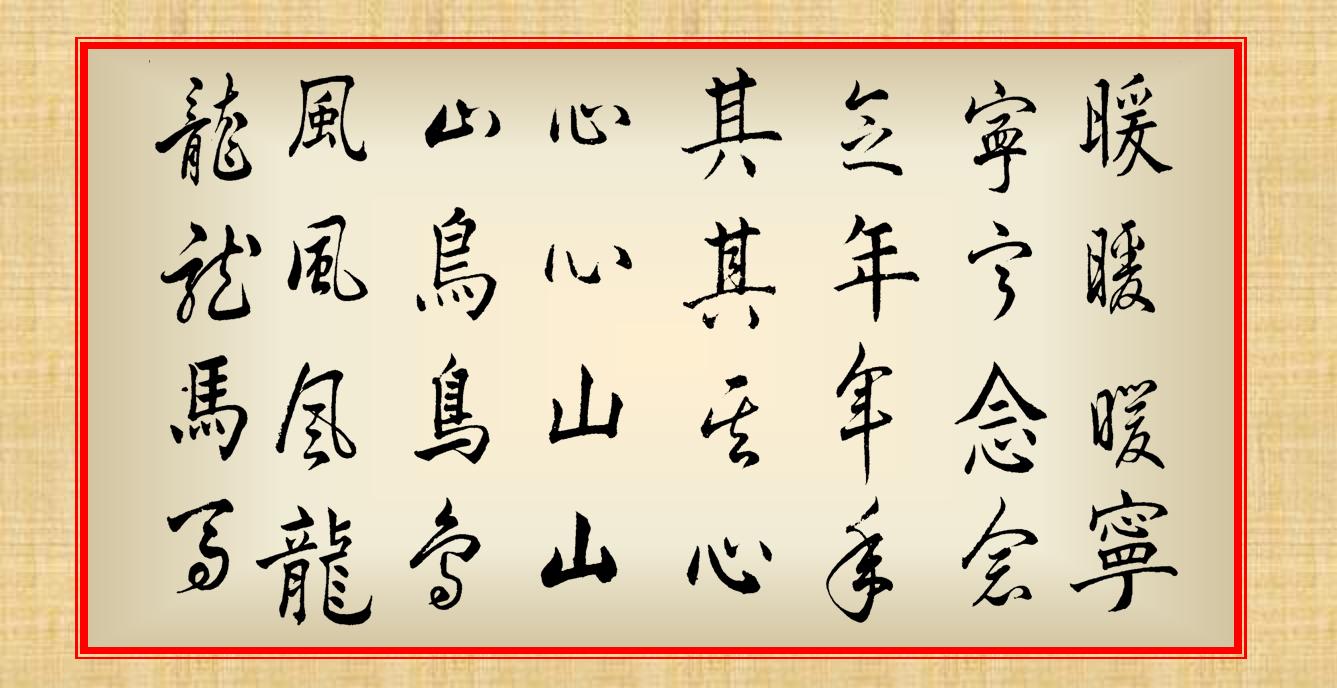 暖暖暖寧
寧寧念念
念年年年
其其其心
心心山山
山鳥鳥鳥
風風風龍
龍龍馬馬